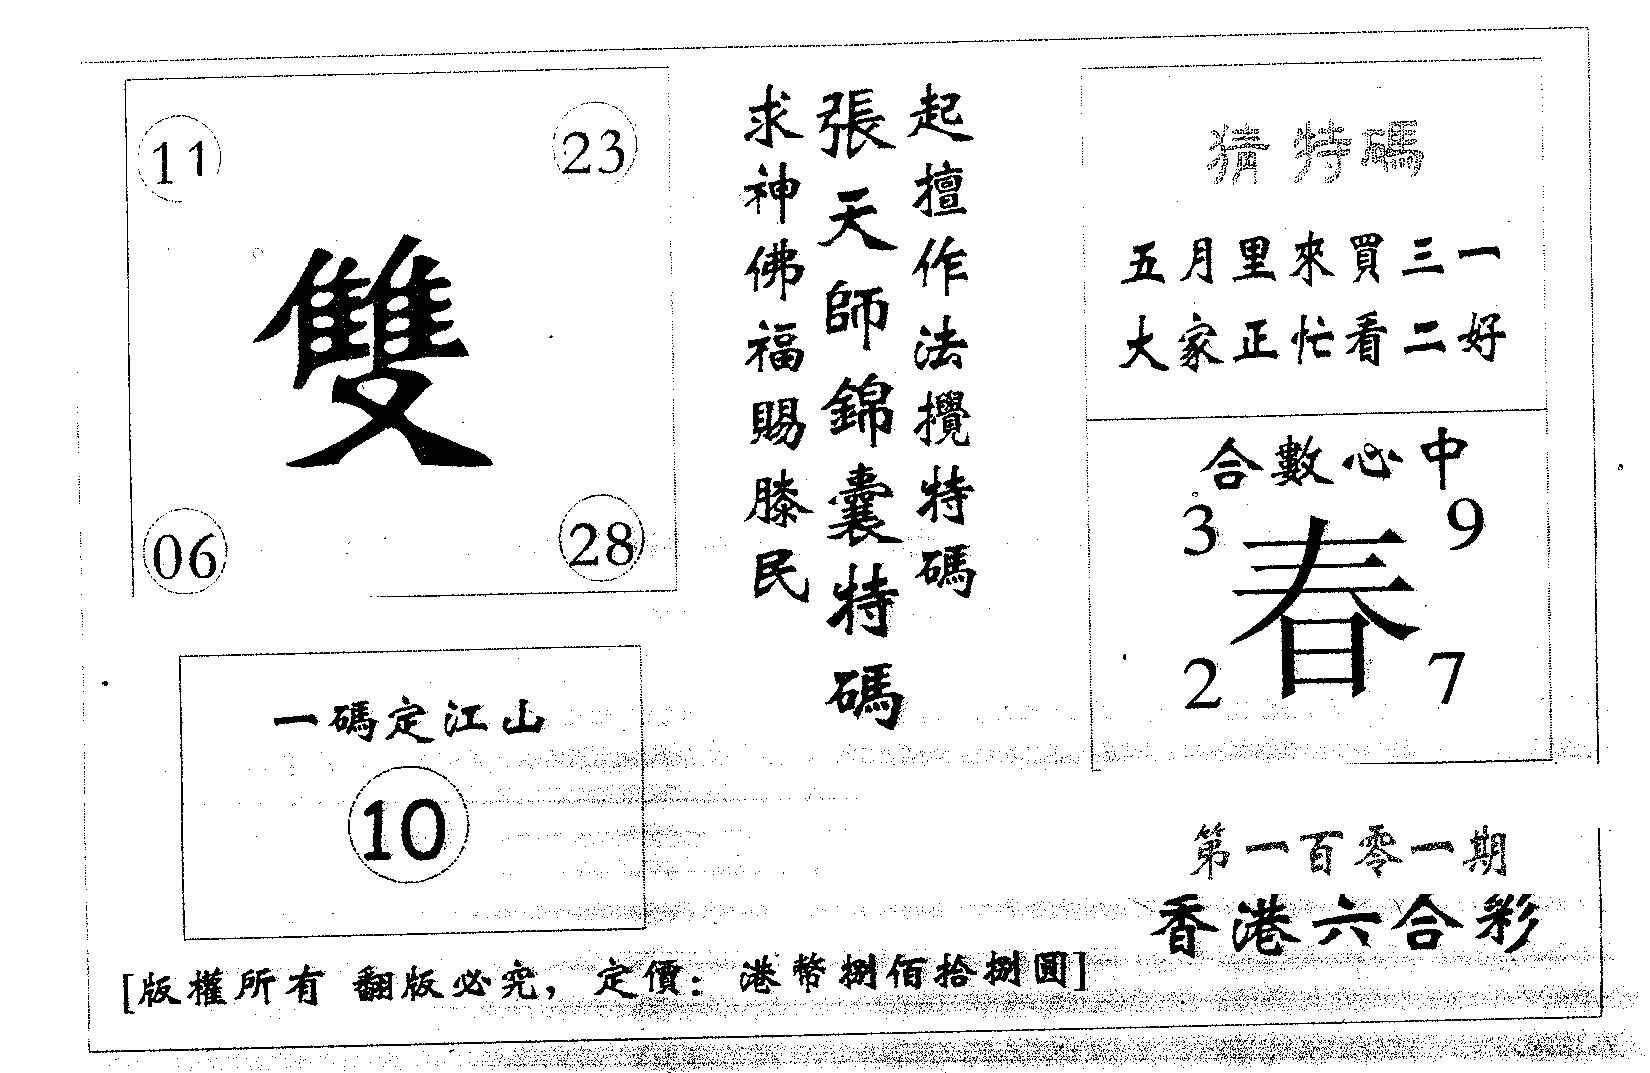 11
23
雙
06
28
一碼定江山
10
起擅作法攪特碼
張天師錦囊特碼
求神佛福賜膝民
猜特碼
五月里來買三一
大家正忙看二好
合數心中
3
9
春
2
7
第一百零一期
香港六合彩
[版權所有 翻版必究，定價：港幣捌佰拾捌圓]